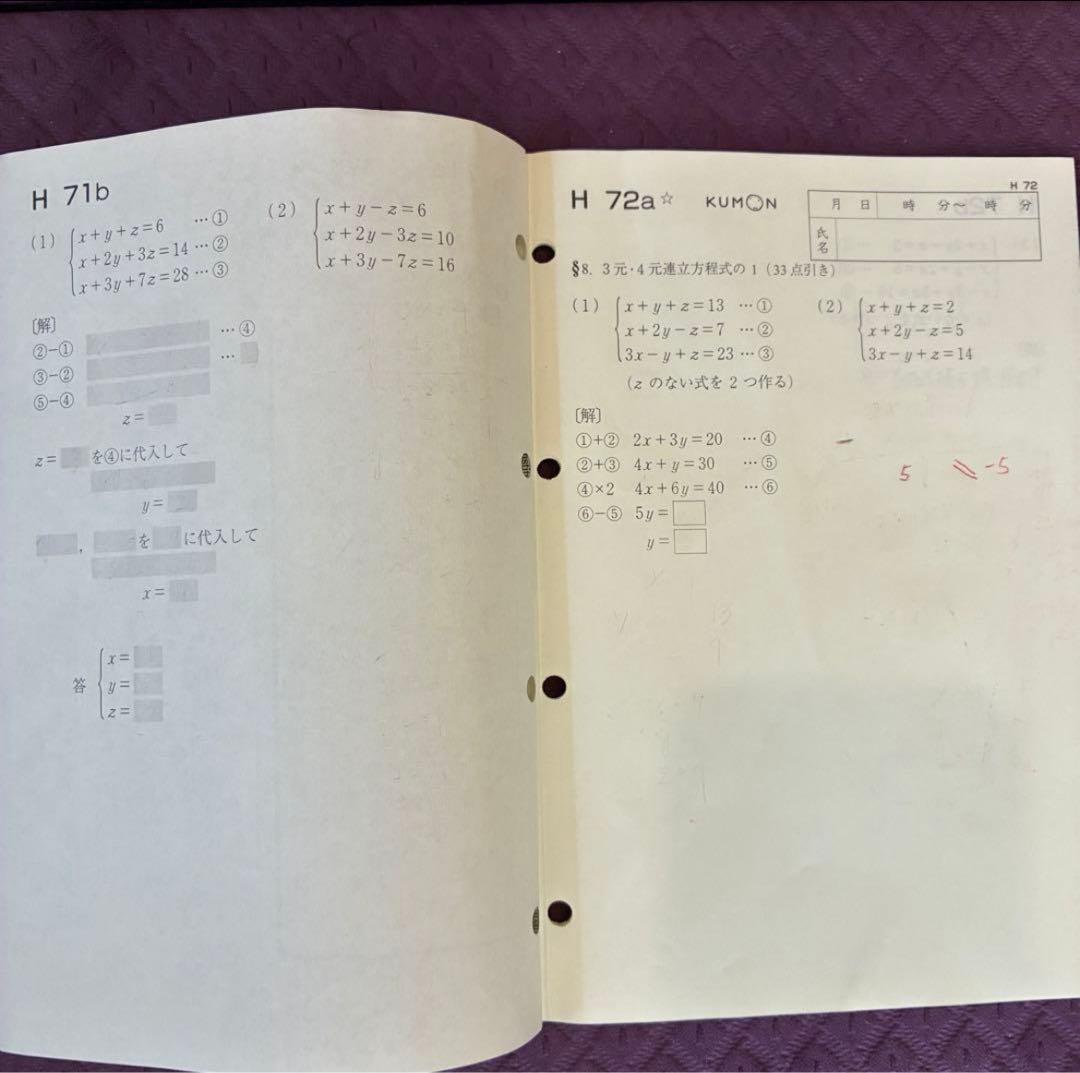 H 71b
(1) x+y+z=6 …①
x+2y+3z=14 …②
x+3y+7z=28 …③
(2) x+y-z=6
x+2y-3z=10
x+3y-7z=16
[解]
②-① …④
③-② …
⑤-④
z=
z= を④に代入して
y=
, を に代入して
x=
答 x=
y=
z=
H 72a☆ KUMON
H 72
月 日 時 分～ 時 分
氏名
§8. 3元・4元連立方程式の1 (33点引き)
(1) x+y+z=13 …①
x+2y-z=7 …②
3x-y+z=23 …③
(zのない式を2つ作る)
(2) x+y+z=2
x+2y-z=5
3x-y+z=14
[解]
①+② 2x+3y=20 …④
②+③ 4x+y=30 …⑤
④×2 4x+6y=40 …⑥
⑥-⑤ 5y=
y=
5 -5